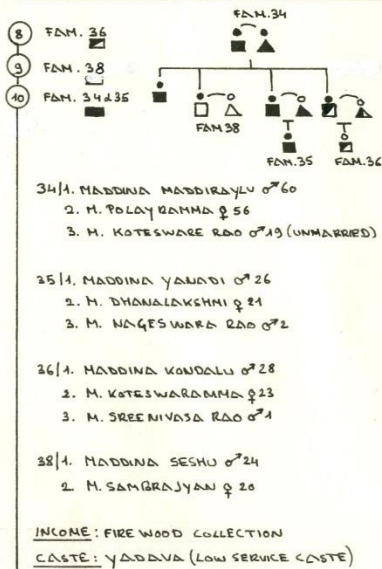 FAM. 34
8 FAM. 36
9 FAM. 38
10 FAM. 34&35
FAM 38
FAM. 35
FAM. 36
34/1. MADDINA MADDIRAYLU ♂ 60
2. M. POLAYRAMMA ♀ 56
3. M. KOTESWARE RAO ♂ 19 (UNMARRIED)
35/1. MADDINA YANADI ♂ 26
2. M. DHANALAKSHMI ♀ 21
3. M. NAGESWARA RAO ♂ 2
36/1. MADDINA KONDALU ♂ 28
2. M. KOTESWARAMMA ♀ 23
3. M. SREENIVASA RAO ♂ 1
38/1. MADDINA SESHU ♂ 24
2. M. SAMBRAJYAN ♀ 20
INCOME: FIRE WOOD COLLECTION
CASTE: YADAVA (LOW SERVICE CASTE)